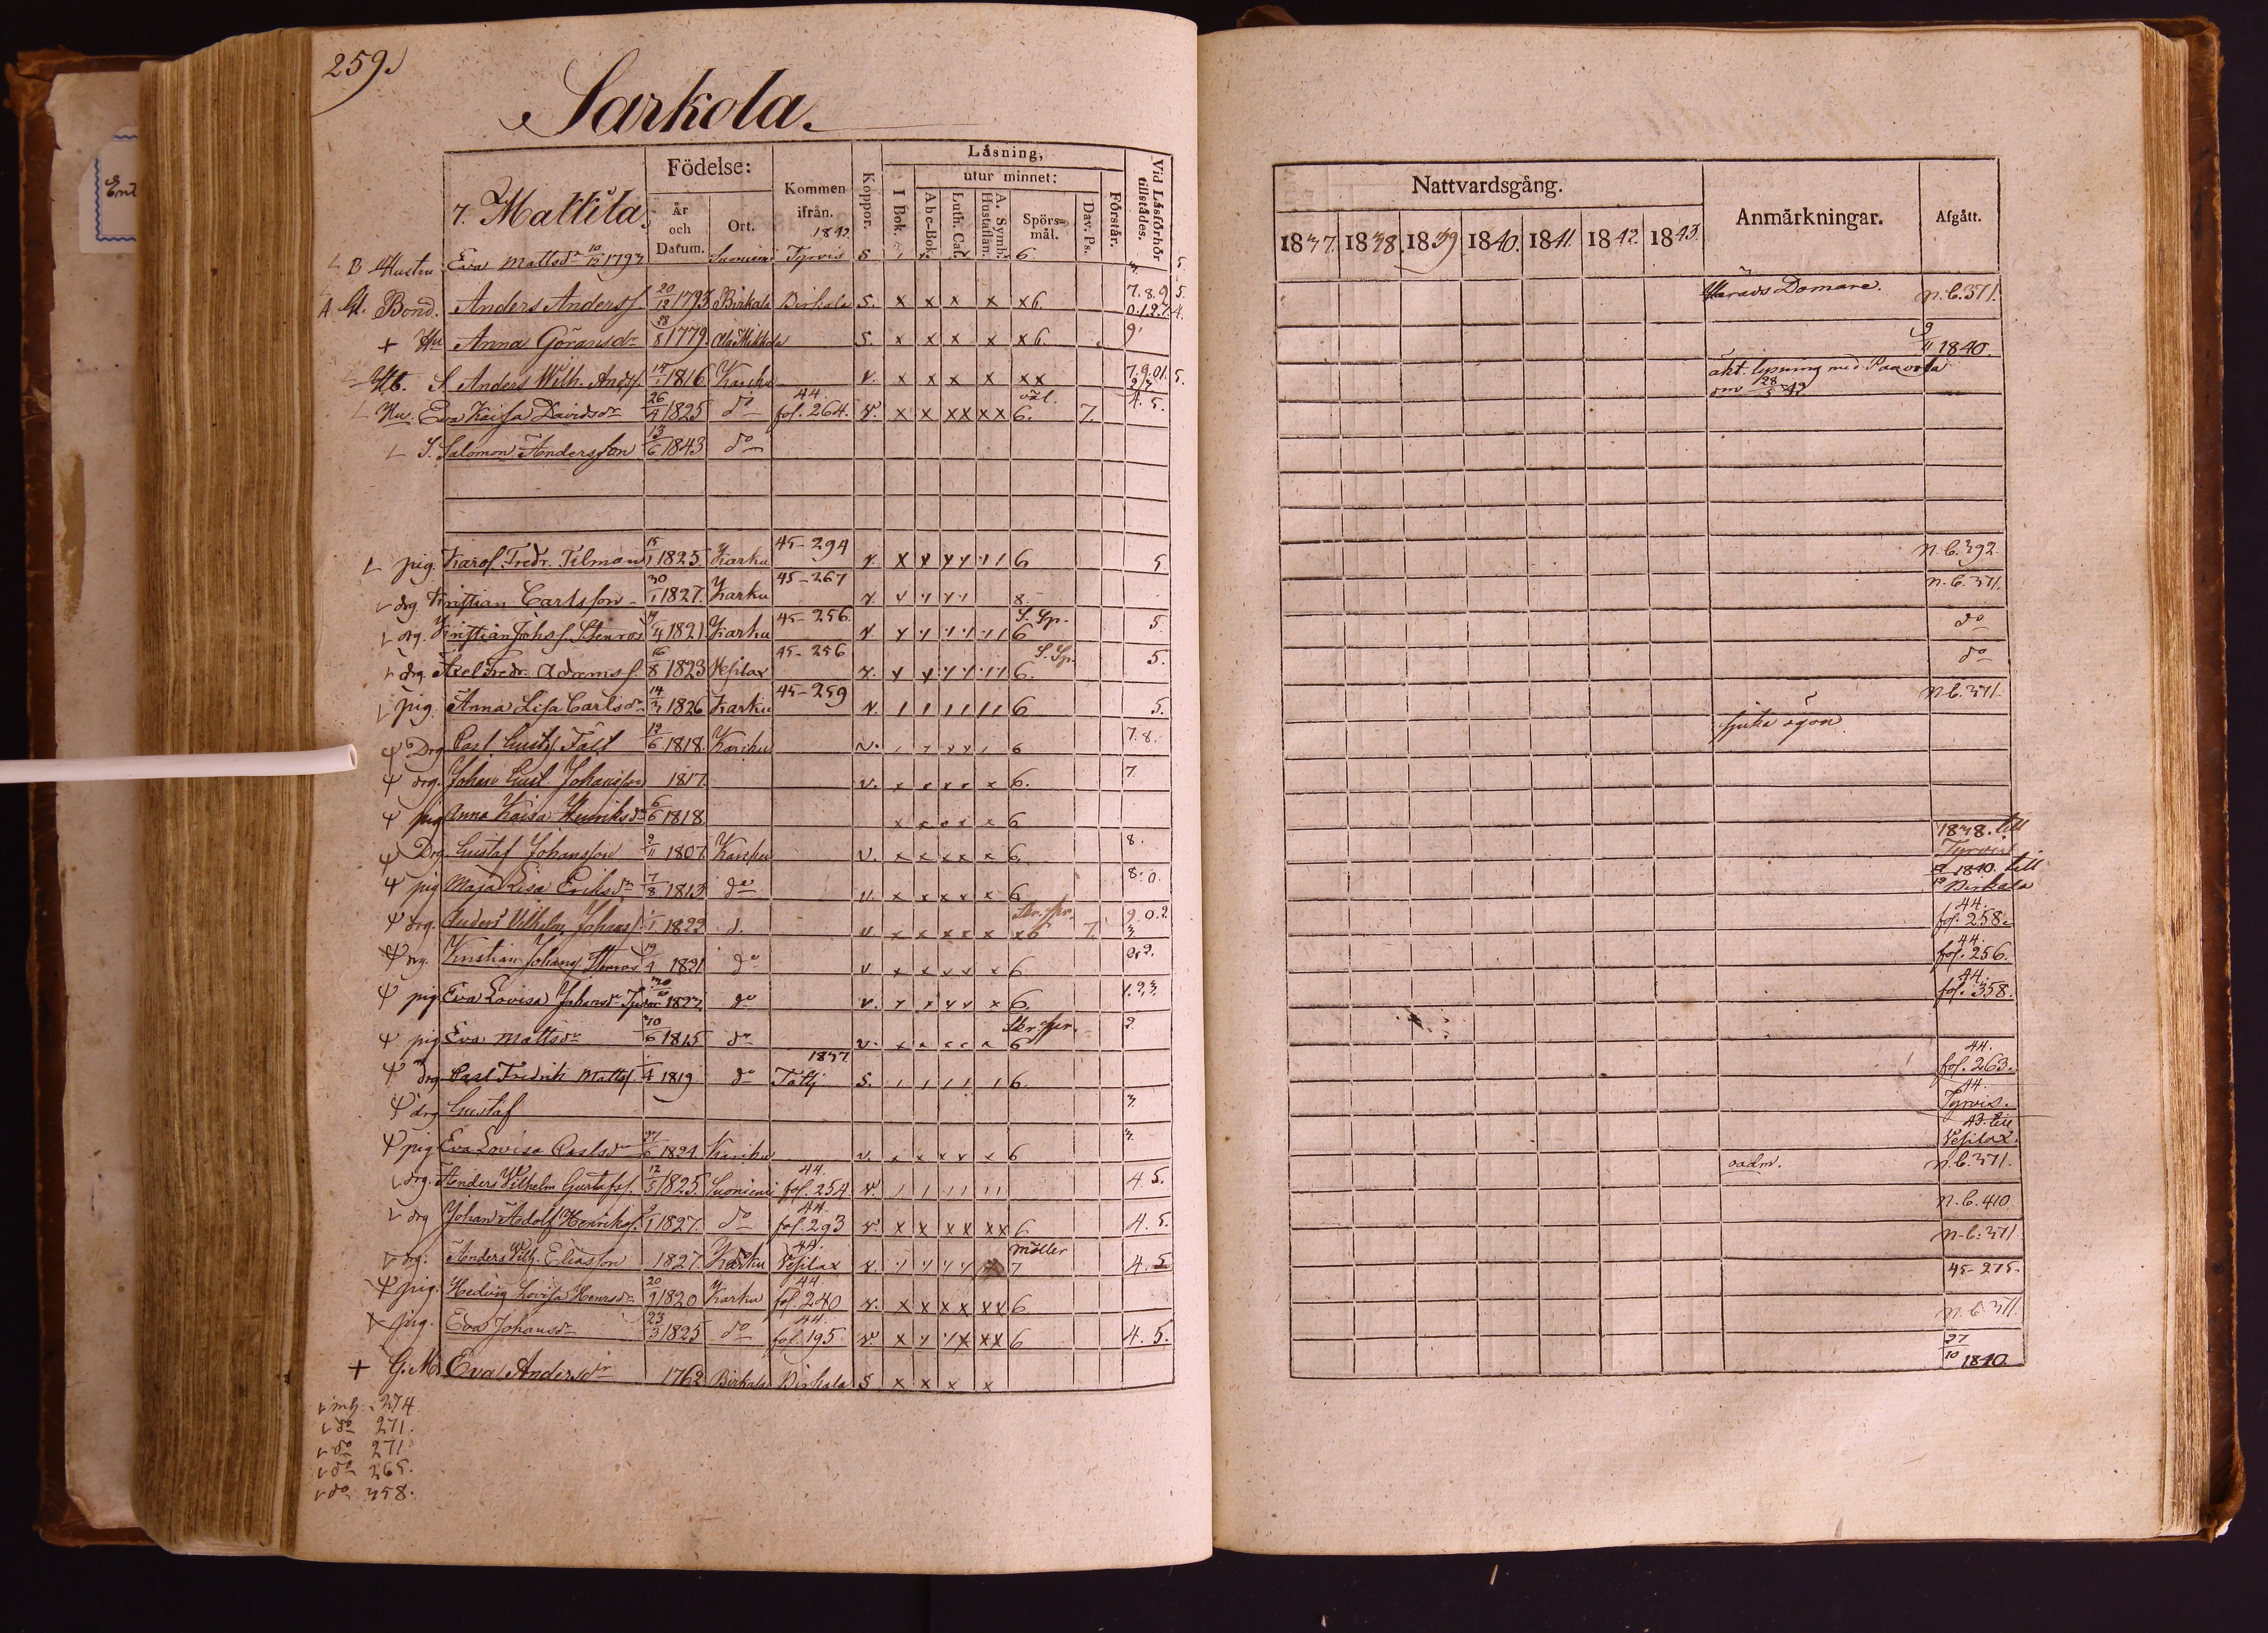 259.
Sarkola.
7. Mattila
Födelse: Kommen ifrån. Koppor. Läsning, Vid Läsförhör tillstädes.
År och Datum. Ort. 1842 I Bok. utur minnet: Förstår.
Abc-Bok. Luth. Cat. A. Symb. Hustaflan. Spörsmål. Dav. Ps.
B Hustru Eva Mattsdr 10/12 1793 Suoniemi Tyrvis S 6 5.
A Gl. Bond. Anders Anderss. 20/12 1793 Birkala Birkala S. x x x x x6 7.8.9 5. 0.1.2.7. 4.
+ Hu Anna Göransdr 1779. S. x x x x x6 9
Ub. S. Anders Wilh. Anderss. 14/1 1816 Karku v. x x x x xx 7.9.01. 5.
Hu. Eva Kaisa Davidsdr 26/4 1825 do 44. fol. 264. v. x x xx xx 6. väl. 7. 4. 5.
S. Salomon Andersson 13/6 1843 do
pig. Karol. Fredr. Tilman 15/1 1825. Karku 45-294 v. x x x x 6 5
drg. Kristian Carlsson 30/1 1827. Karku 45-267 v. 8
drg. Kristian Johs. Stenros 19/4 1821 Karku 45-256. v. 6 S. Sp. 5.
drg. Axel Fredr. Adams s. 16/8 1823 Vesilax 45-256 v. 6. S. Sp. 5.
pig. Anna Lisa Carlsdr 14/3 1826 Karku 45-259 v. 1 1 1 1 1 1 6 5.
Drg Carl Gustaf Fält 19/6 1818. Karku v. 6 7.8.
drg. Johan Gust. Johansson 1817. v. x x x x x 6. 7.
pig Anna Kaisa Henriksdr 6/6 1818 x x x x x 6
Drg. Gustaf Johansson 9/11 1807. Karku v. x x x x x 6. 8.
pig Maja Lisa Eriksdr 7/8 1813 do v. x x x x x 6 8.0.
drg. Anders Vilhelm Johans s. 1/1 1822 d. v x x x x x x6 7. 9.0.2. 3
drg. Kristian Johans. Stenros 19/4 1821 do v x x x x x 6. 0.2.
pig Eva Lovisa Johansdr 1823 do v. x x x x x 6. 1.2.3.
pig Eva Mattsdr 30/6 1815 do v. x x x x x 6 2.
drg Carl Fredrik Mattss. 1/4 1819 do 1837. S. 1 1 1 1 1 6.
drg Gustaf 3.
pig Eva Lovisa Carlsdr 27/6 1824 Karku v. x x x x x 6 3.
drg. Anders Wilhelm Gustafss. 12/5 1825. Suoniemi 44. fol. 254 v. 1 1 1 1 1 1 4 5.
drg Johan Adolf Henrikss. 9/1 1827. do 44. fol. 293 v. x x x x x x 6 4. 5.
drg: Anders Wilh. Eliasson 1827. Karku 44. Vesilax v. 7 möller 4. 5
pig. Hedvig Lovisa Henrsdr 20/9 1820 Karku 44 fol. 240 v. x x x x xx 6
pig. Eva Johansdr 23/3 1825 do 44. fol. 195. v. x x x x x x 6 4. 5.
+ G.M. Eva Andersdr 1762 Birkala Birkala S x x x x
inh. 274
do 271.
do 271
do 265.
do 358.
Nattvardsgång. Anmärkningar. Afgått.
1837. 1838. 1839 1840. 1841. 1842. 1843.
Härads Domare. n.b. 371.
9/11 1840.
äkt. lysning med Paavola
om 28/5 42
n.b. 392.
n.b. 371.
do
do
n.b. 371.
sjuka ögon
1838. till Tyrvis
1840. till Birkala
44. fol. 258.
44. fol. 256.
44. fol. 358.
44. fol. 263.
44. Tyrvis.
43. till Vesilax.
oadm. n.b. 371.
n.b. 410.
n.b. 371
45-275.
n.b. 371.
27/10 1840.